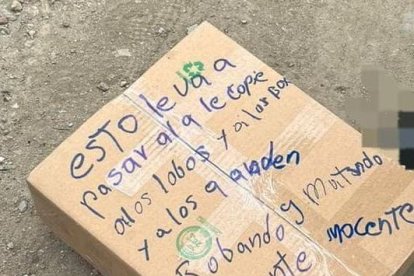 esto le va a
pasar a la le copie
a los lobos y a los Box
y a los q anden
Robando y matando
inocente
nte